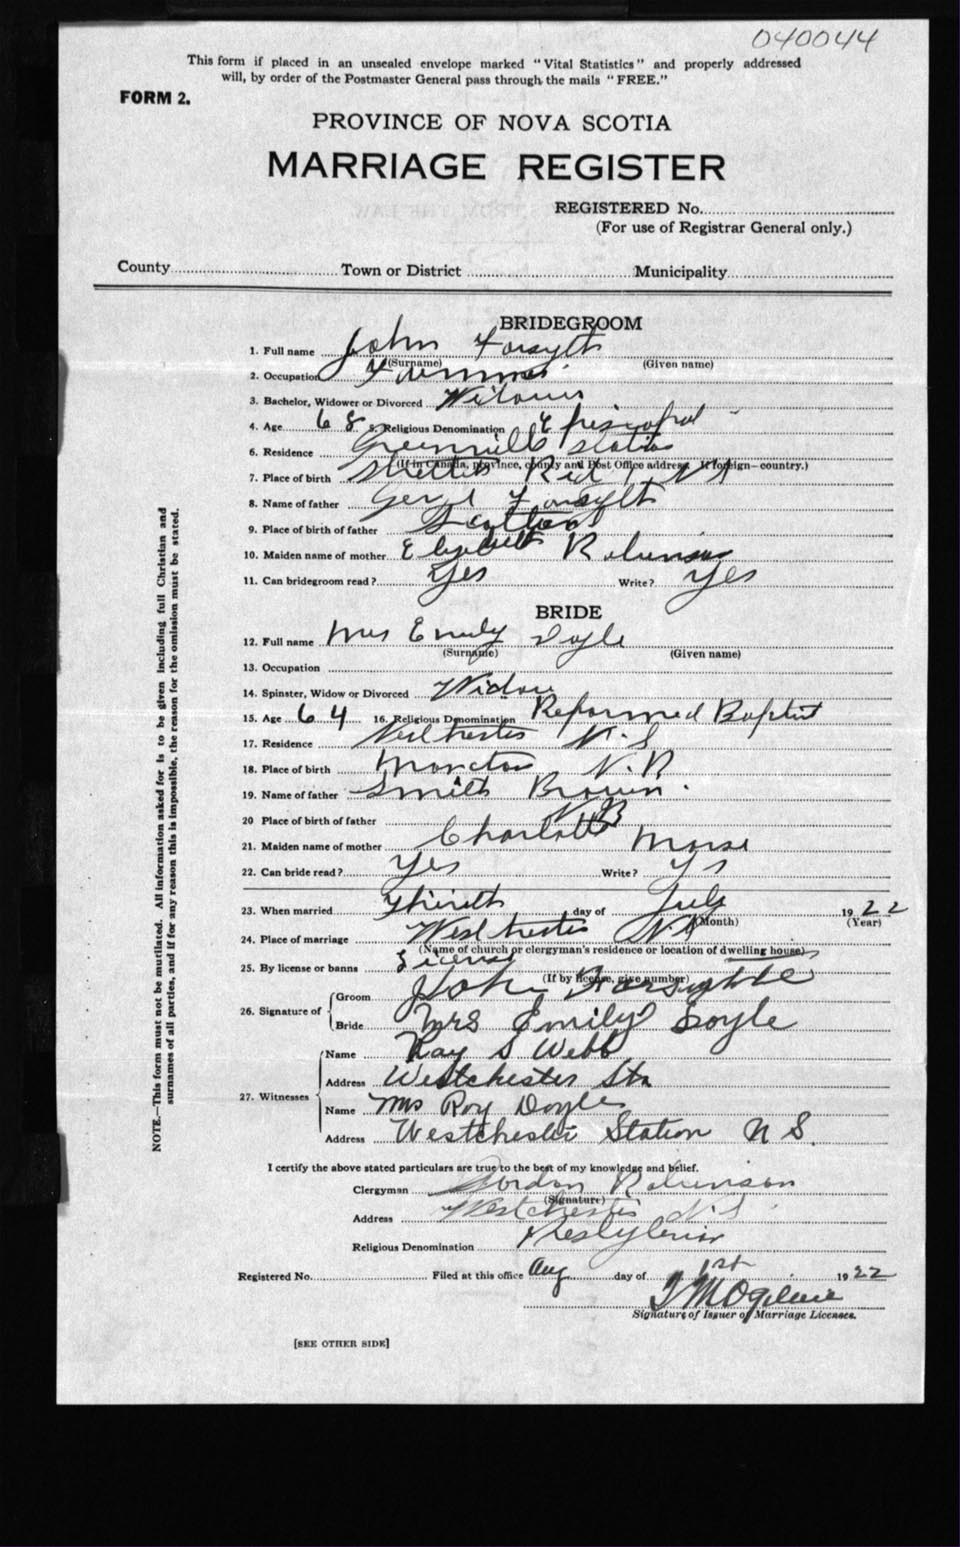 040044
This form if placed in an unsealed envelope marked "Vital Statistics" and properly addressed
will, by order of the Postmaster General pass through the mails "FREE."
FORM 2.
PROVINCE OF NOVA SCOTIA
MARRIAGE REGISTER
REGISTERED No.
(For use of Registrar General only.)
County Town or District Municipality
BRIDEGROOM
1. Full name John Forsyth
(Surname) (Given name)
2. Occupation
3. Bachelor, Widower or Divorced
4. Age 68 5. Religious Denomination Episcopal
6. Residence Station
(If in Canada, province, county and Post Office address. If foreign—country.)
7. Place of birth N S
8. Name of father Forsyth
9. Place of birth of father Scotland
10. Maiden name of mother Elizabeth Robinson
11. Can bridegroom read? Yes Write? Yes
BRIDE
12. Full name Mrs Emily Doyle
(Surname) (Given name)
13. Occupation
14. Spinster, Widow or Divorced Widow
15. Age 64 16. Religious Denomination Reformed Baptist
17. Residence Westchester N.S
18. Place of birth Moncton N.B
19. Name of father Smith Brown.
20 Place of birth of father NB
21. Maiden name of mother Charlotte Morse
22. Can bride read? Yes Write? Ys
23. When married day of July 1922
(Month) (Year)
24. Place of marriage Westchester N.S
(Name of church or clergyman's residence or location of dwelling house)
25. By license or banns License
(If by license, give number)
26. Signature of Groom John
Bride Mrs Emily Doyle
27. Witnesses Name Ray S Webb
Address Westchester Stn
Name Mrs Roy Doyle
Address Westchester Station N S.
I certify the above stated particulars are true to the best of my knowledge and belief.
Clergyman Gordon Robinson
(Signature)
Address Westchester N.S.
Religious Denomination Presbyterian
Registered No. Filed at this office Aug day of 1st 1922
T M Ogilvie
Signature of Issuer of Marriage Licenses.
[SEE OTHER SIDE]
NOTE.—This form must not be mutilated. All information asked for is to be given including full Christian and
surnames of all parties, and if for any reason this is impossible, the reason for the omission must be stated.